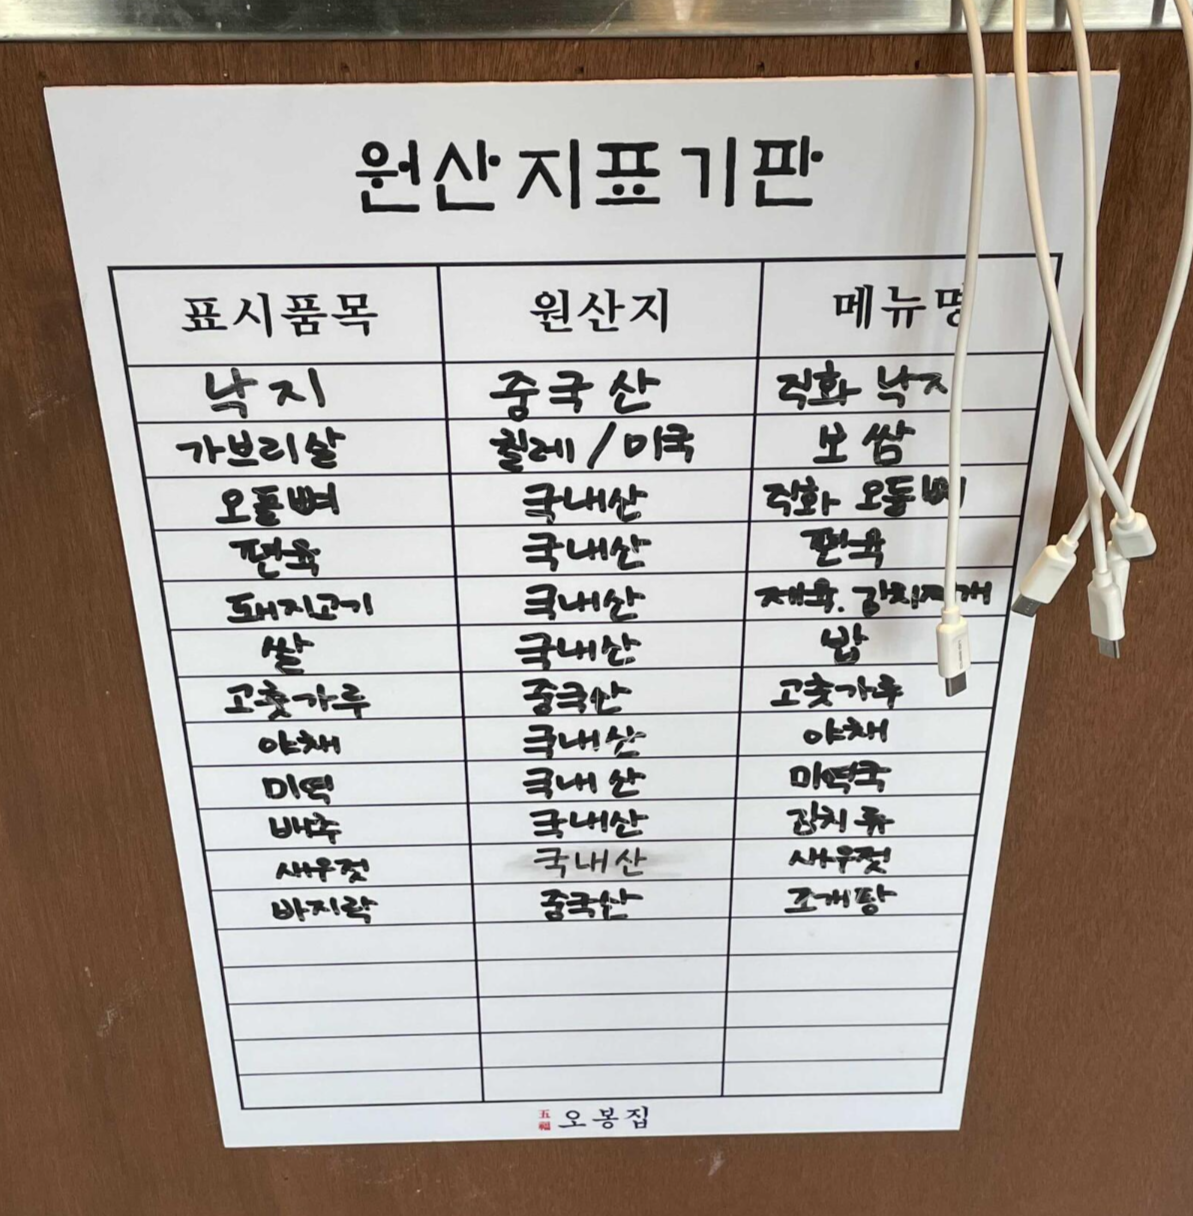 원산지표기판
표시품목 원산지 메뉴명
낙지 중국산 직화 낙지
가브리살 칠레/미국 보쌈
오돌뼈 국내산 직화 오돌뼈
편육 국내산 편육
돼지고기 국내산 제육. 김치찌개
쌀 국내산 밥
고춧가루 중국산 고춧가루
야채 국내산 야채
미역 국내산 미역국
배추 국내산 김치류
새우젓 국내산 새우젓
바지락 중국산 조개탕
五福 오봉집